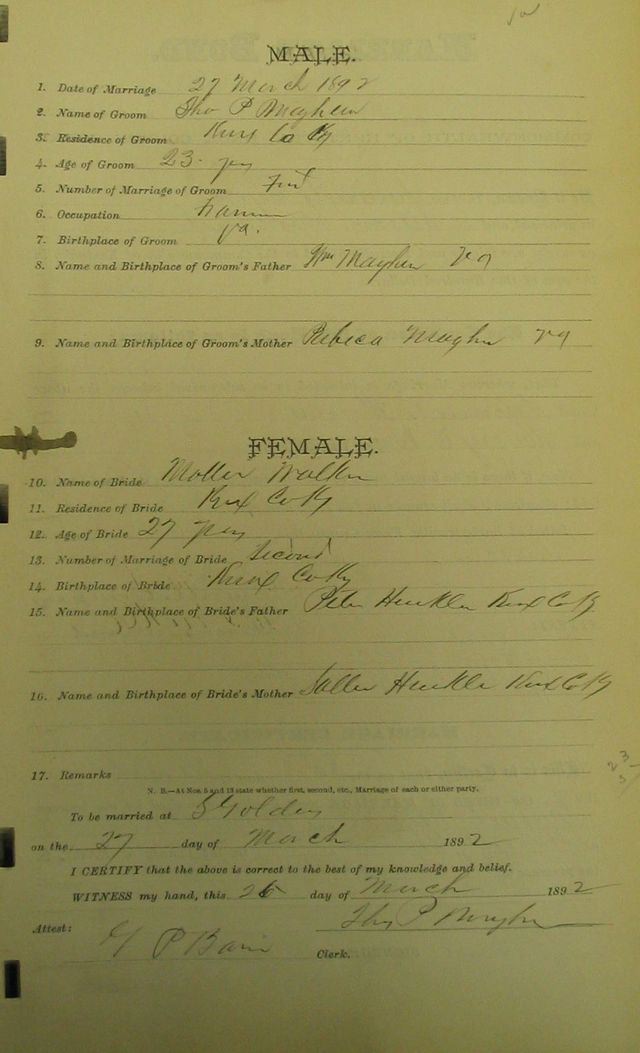 MALE.
1. Date of Marriage 27 March 1892
2. Name of Groom Tho P Mayhew
3. Residence of Groom Knox Co Ky
4. Age of Groom 23 yrs
5. Number of Marriage of Groom First
6. Occupation Farmer
7. Birthplace of Groom Va.
8. Name and Birthplace of Groom's Father Wm Mayhew Va
9. Name and Birthplace of Groom's Mother Rebeca Mayhew Va
FEMALE.
10. Name of Bride Walker
11. Residence of Bride Knox Co Ky
12. Age of Bride 27 yrs
13. Number of Marriage of Bride Second
14. Birthplace of Bride Knox Co Ky
15. Name and Birthplace of Bride's Father Peter Knox Co Ky
16. Name and Birthplace of Bride's Mother Knox Co Ky
17. Remarks
N. B.—At Nos. 5 and 13 state whether first, second, etc., Marriage of each or either party.
To be married at
on the 27 day of March 1892
I CERTIFY that the above is correct to the best of my knowledge and belief.
WITNESS my hand, this 26 day of March 1892
Tho P Mayhew
Attest:
Clerk.